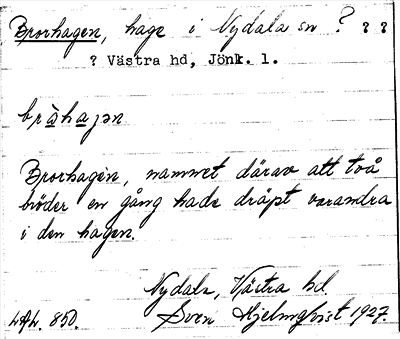 Brorhagen, hage i Nydala sn ? ? ?
? Västra hd, Jönk. l.
bråhagən
Brorhagen, namnet därav att två
bröder en gång hade dräpt varandra
i den hagen.
Nydala, Västra hd
Sven Hjelmqvist 1927.
850.